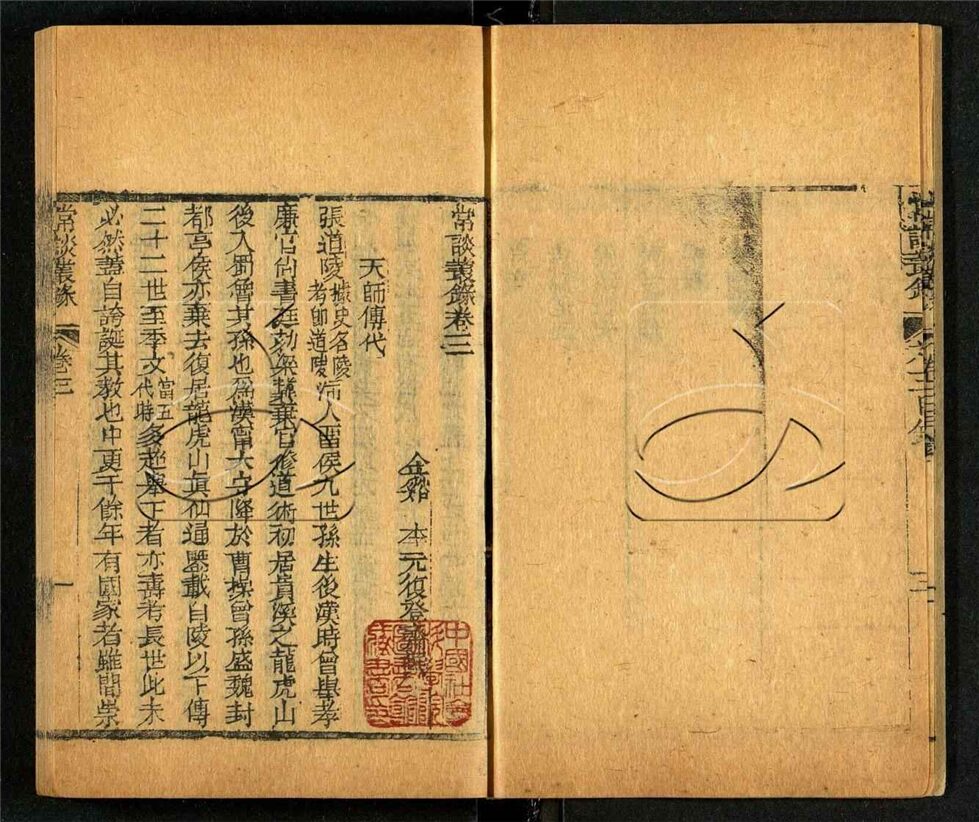 常談叢錄卷三
金谿 李元復登齋
天師傳代
張道陵據史名陵考師道陵沛人畱侯九世孫生後漢時曾舉孝
廉官尙書廷劾梁冀棄官修道術初居貴溪之龍虎山
後入蜀魯其孫也爲漢甯太守降於曹操曾孫盛魏封
都亭侯亦棄去復居龍虎山眞仙通鑒載自陵以下傳
二十二世至季文當五代時多超舉下者亦壽考長世此未
必然蓋自誇誕其教也中更千餘年有國家者雖間崇
常談叢錄 卷三 一
中國社會科學院圖書館藏書